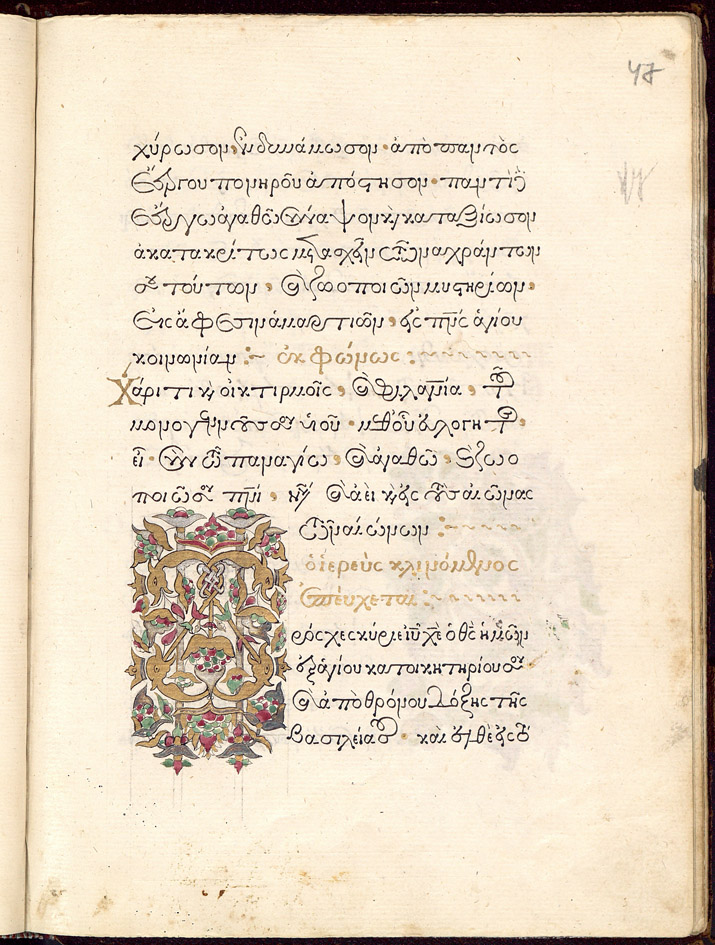 χύρωσον, ἐνδυνάμωσον· ἀπὸ παντὸς
ἔργου πονηροῦ ἀπόστησον· παντὶ δὲ
ἔργω ἀγαθῶ σύναψον· καὶ καταξίωσον
ἀκατακρίτως μετασχεῖν τῶν ἀχράντων
σου τούτων· καὶ ζωοποιῶν μυστηρίων,
εἰς ἄφεσιν ἁμαρτιῶν, εἰς πν̅ς ἁγίου
κοινωνίαν :~ ἐκφώνως :~
Χάριτι καὶ οἰκτιρμοῖς, καὶ φιλανίᾳ, τοῦ
μονογενοῦς σου υἱοῦ· μεθ' οὗ εὐλογητὸς
εἶ· σὺν τῶ παναγίω, καὶ ἀγαθῶ, καὶ ζωο
ποιῶ σου πνι· νῦν καὶ ἀεὶ καὶ εἰς τοὺς αἰῶνας
τῶν αἰώνων :~
ὁ ἱερεὺς κλινόμενος
ἐπεύχεται :~
Πρόσχες κύριε ιυ χε ὁ θς ἡμῶν
ἐξ ἁγίου κατοικητηρίου σου
καὶ ἀπὸ θρόνου δόξης τῆς
βασιλείας σου· καὶ ἐλθὲ εἰς τὸ